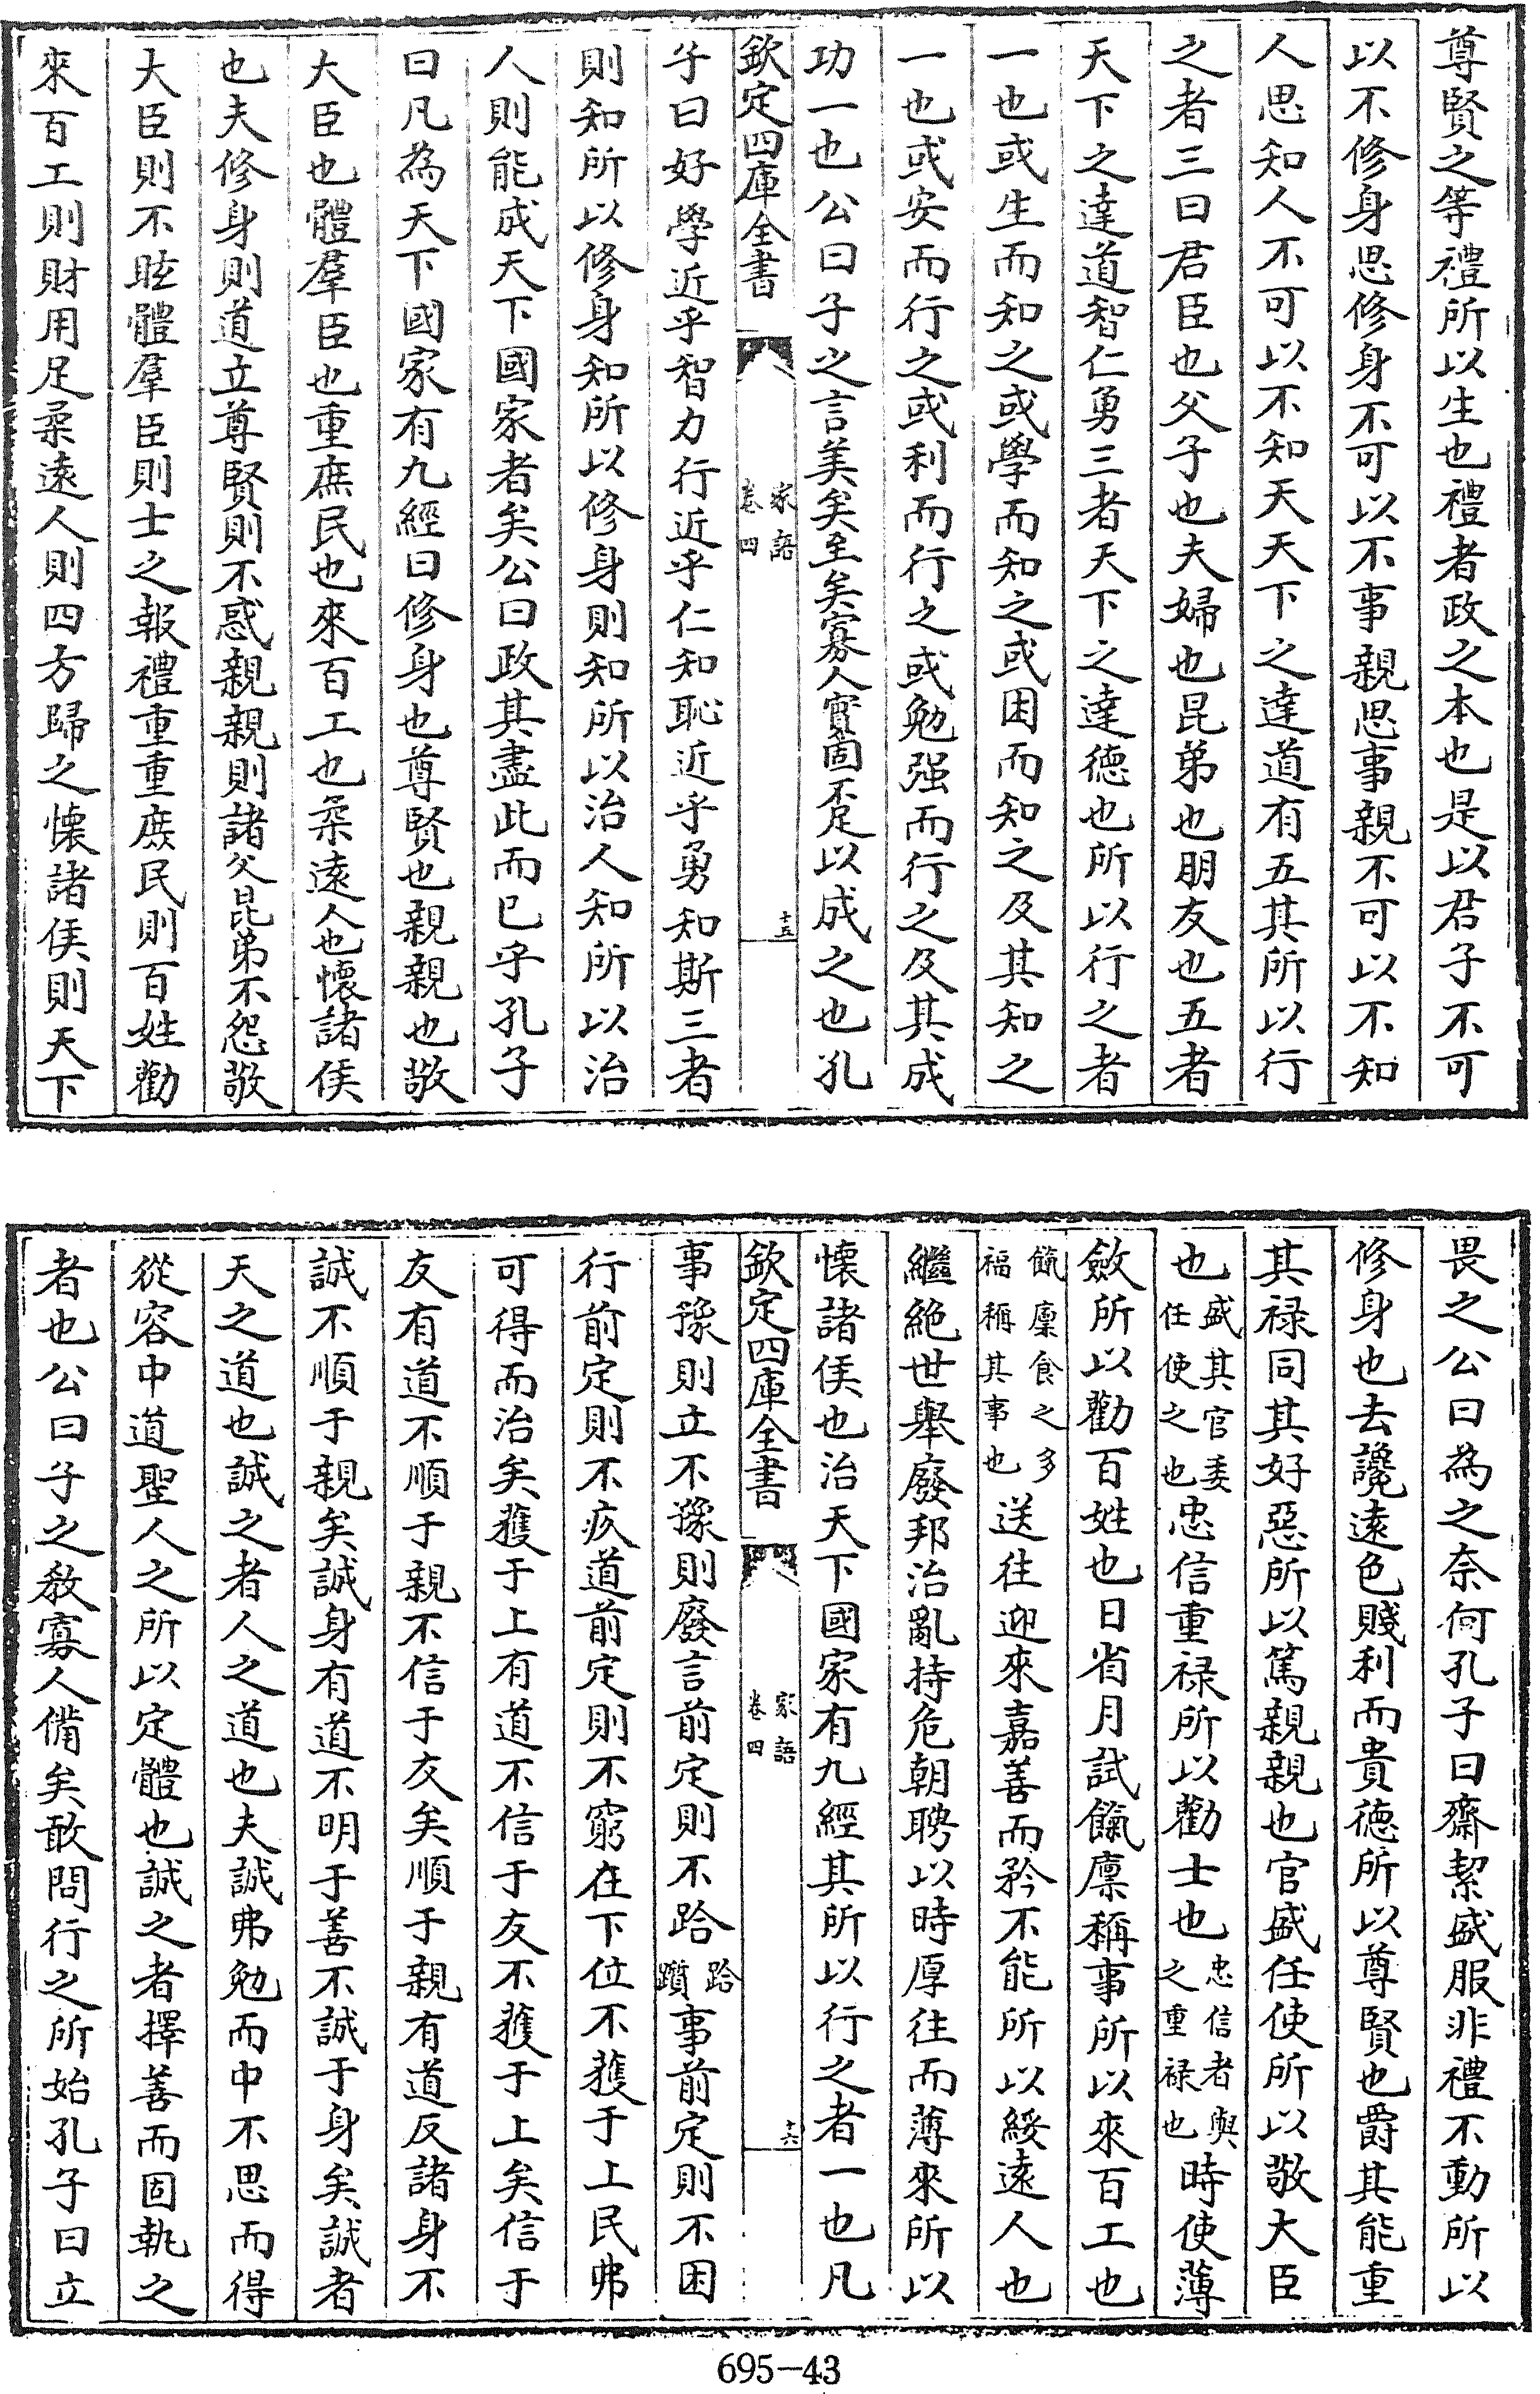 尊賢之等禮所以生也禮者政之本也是以君子不可
以不修身思修身不可以不事親思事親不可以不知
人思知人不可以不知天天下之達道有五其所以行
之者三曰君臣也父子也夫婦也昆弟也朋友也五者
天下之達道智仁勇三者天下之達德也所以行之者
一也或生而知之或學而知之或困而知之及其知之
一也或安而行之或利而行之或勉强而行之及其成
功一也公曰子之言美矣至矣寡人實固不足以成之也孔
欽定四庫全書
家語
卷四
十五
子曰好學近乎智力行近乎仁知恥近乎勇知斯三者
則知所以修身知所以修身則知所以治人知所以治
人則能成天下國家者矣公曰政其盡此而已乎孔子
曰凡為天下國家有九經曰修身也尊賢也親親也敬
大臣也體羣臣也重庶民也來百工也柔遠人也懷諸侯
也夫修身則道立尊賢則不惑親親則諸父昆弟不怨敬
大臣則不眩體羣臣則士之報禮重重庶民則百姓勸
來百工則財用足柔遠人則四方歸之懷諸侯則天下
畏之公曰為之奈何孔子曰齋潔盛服非禮不動所以
修身也去讒遠色賤利而貴德所以尊賢也爵其能重
其祿同其好惡所以篤親親也官盛任使所以敬大臣
也盛其官委任使之也忠信重祿所以勸士也忠信者與之重祿也時使薄
斂所以勸百姓也日省月試餼廩稱事所以來百工也
餼廩食之多福稱其事也送往迎來嘉善而矜不能所以綏遠人也
繼絕世舉廢邦治亂持危朝聘以時厚往而薄來所以
懷諸侯也治天下國家有九經其所以行之者一也凡
欽定四庫全書
家語
卷四
十六
事豫則立不豫則廢言前定則不跲跲躓事前定則不困
行前定則不疚道前定則不窮在下位不獲于上民弗
可得而治矣獲于上有道不信于友不獲于上矣信于
友有道不順于親不信于友矣順于親有道反諸身不
誠不順于親矣誠身有道不明于善不誠于身矣誠者
天之道也誠之者人之道也夫誠弗勉而中不思而得
從容中道聖人之所以定體也誠之者擇善而固執之
者也公曰子之教寡人備矣敢問行之所始孔子曰立
695-43